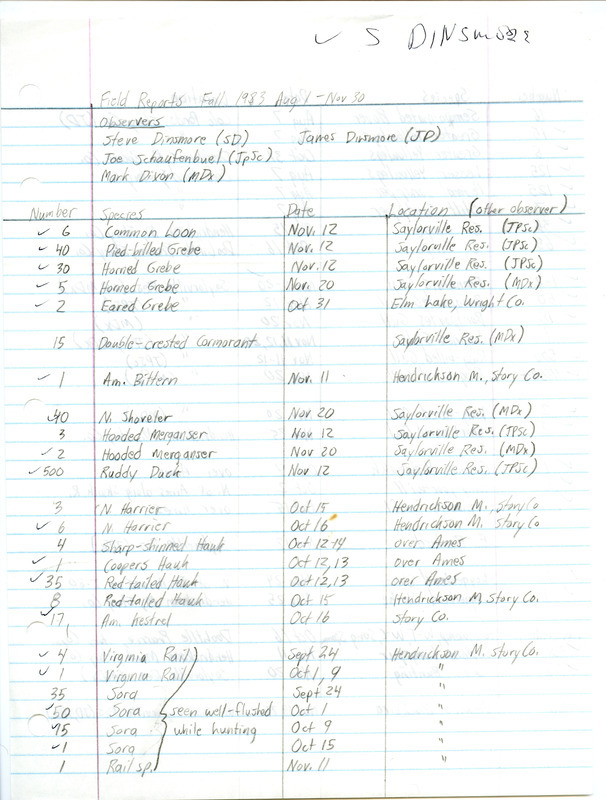 ✓ S DINSMORE
Field Reports Fall 1983 Aug 1 - Nov 30
Observers
Steve Dinsmore (SD) James Dinsmore (JD)
Joe Schaufenbuel (JPSc)
Mark Dixon (MDx)
Number Species Date Location (other observer)
✓ 6 Common Loon Nov. 12 Saylorville Res. (JPSc)
✓ 40 Pied-billed Grebe Nov. 12 Saylorville Res. (JPSc)
✓ 30 Horned Grebe Nov. 12 Saylorville Res. (JPSc)
✓ 5 Horned Grebe Nov. 20 Saylorville Res. (MDx)
✓ 2 Eared Grebe Oct 31 Elm Lake, Wright Co.
15 Double-crested Cormorant Saylorville Res. (MDx)
✓ 1 Am. Bittern Nov. 11 Hendrickson M., Story Co.
40 N. Shoveler Nov 20 Saylorville Res. (MDx)
3 Hooded Merganser Nov 12 Saylorville Res. (JPSc)
✓ 2 Hooded Merganser Nov 20 Saylorville Res. (MDx)
✓ 500 Ruddy Duck Nov 12 Saylorville Res. (JPSc)
3 N Harrier Oct 15 Hendrickson M., Story Co
✓ 6 N Harrier Oct 16 Hendrickson M. Story Co
4 Sharp-shinned Hawk Oct 12-14 over Ames
✓ 1 Coopers Hawk Oct 12, 13 over Ames
✓ 35 Red-tailed Hawk Oct 12, 13 over Ames
8 Red-tailed Hawk Oct 15 Hendrickson M. Story Co.
✓ 17 Am. Kestrel Oct 16 Story Co.
✓ 4 Virginia Rail Sept 24 Hendrickson M. Story Co.
✓ 1 Virginia Rail Oct 1, 9 "
35 Sora Sept 24 "
✓ 50 Sora seen well-flushed Oct 1 "
✓ 15 Sora while hunting Oct 9 "
✓ 1 Sora Oct 15 "
1 Rail sp. Nov. 11 "